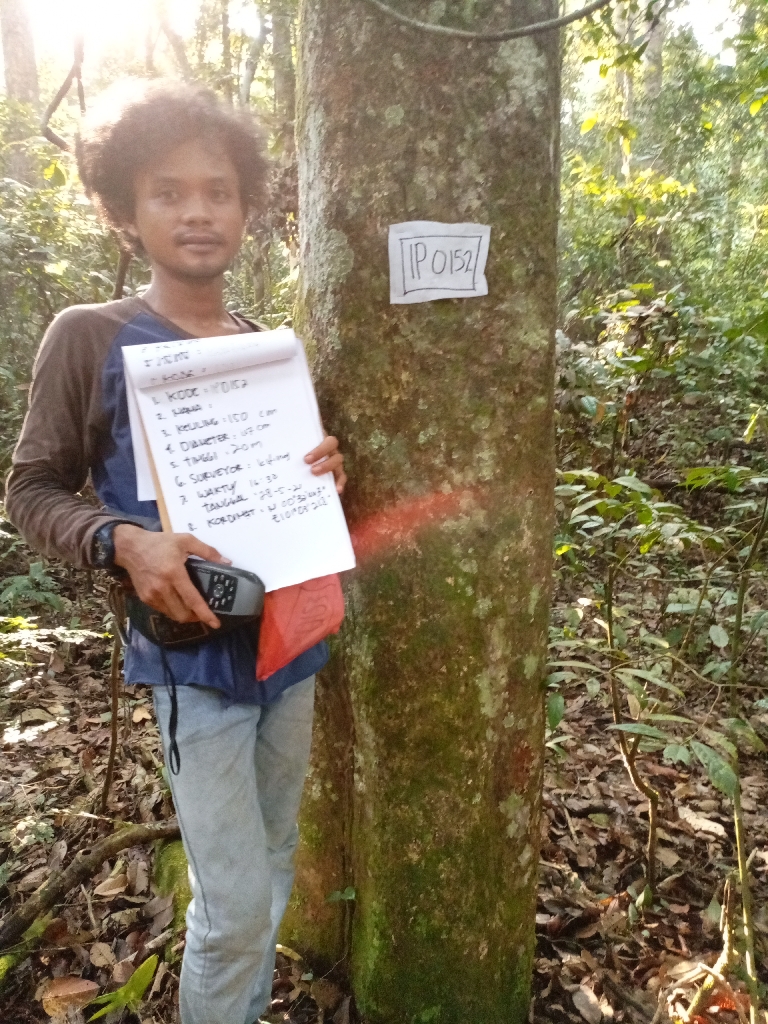 IP0152
1. KODE : IP0152
2. NAMA :
3. KELILING : 150 cm
4. DIAMETER : 47 cm
5. TINGGI : 20 m
6. SURVEYOR :
7. WAKTU : 16:30
TANGGAL : 28-5-21
8. KORDINAT : N 00°32'